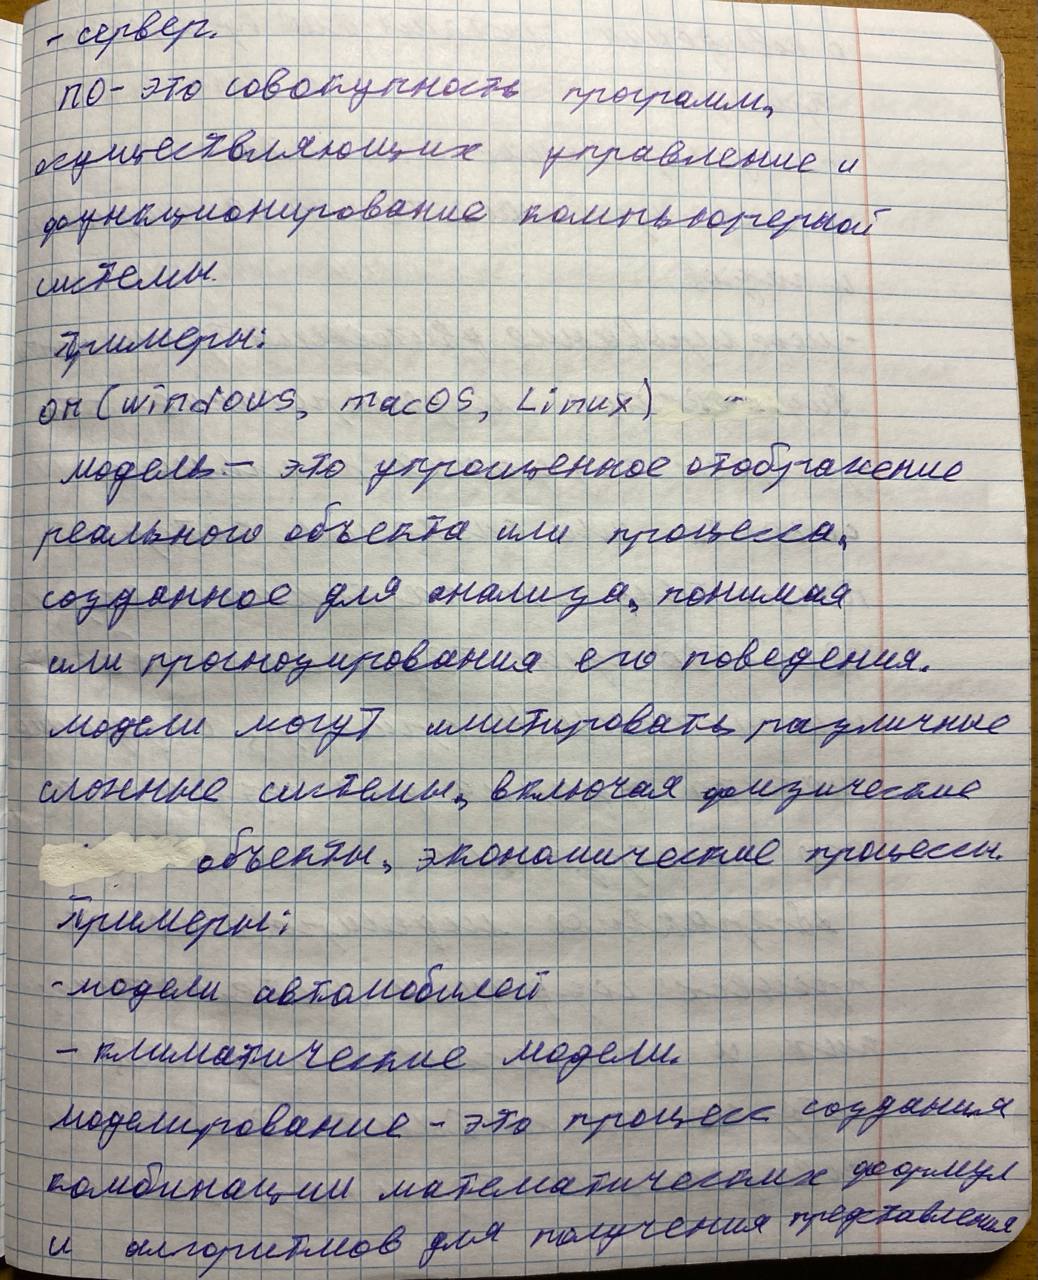 - сервер.
ПО - это совокупность программ,
осуществляющих управление и
функционирование компьютерной
системы.
Примеры:
ОН (windows, macOS, Linux)
модель - это упрощенное отображение
реального объекта или процесса,
созданное для анализа, понимая
или прогнозирования его поведения.
модели могут имитировать различные
сложные системы, включая физические
объекты, экономические процессы.
Примеры:
- модели автомобилей
- климатические модели.
моделирование - это процесс создания
комбинации математических формул
и алгоритмов для получения представления